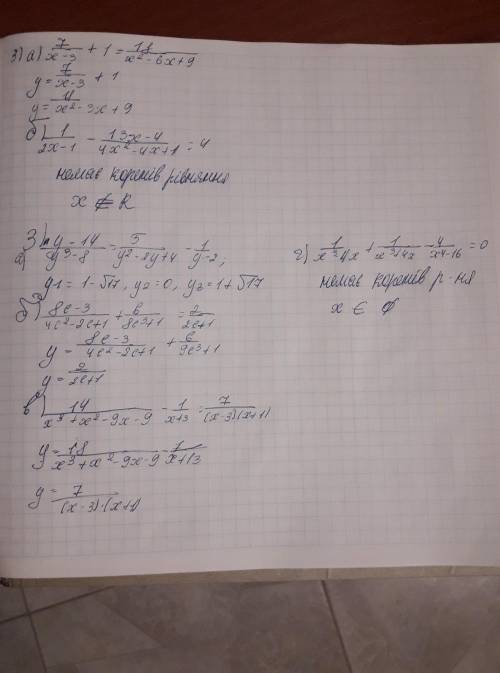 3) а) 7/(x-3) + 1 = 18/(x²-6x+9)
y = 7/(x-3) + 1
y = 11/(x²-3x+9)
б) 1/(2x-1) - (13x-4)/(4x²-4x+1) = 4
немає коренів рівняння
x ∉ R
а) (y-14)/(y³-8) = 5/(y²-2y+4) - 1/(y-2);
y1 = 1-√17, y2 = 0, y3 = 1+√17
б) (8c-3)/(4c²-2c+1) + 6/(8c³+1) = 2/(2c+1)
y = (8c-3)/(4c²-2c+1) + 6/(9c³+1)
y = 2/(2c+1)
в) 14/(x³+x²-9x-9) - 1/(x+3) = 7/((x-3)(x+1))
y = 18/(x³+x²-9x-9) - 1/(x+3)
y = 7/((x-3)·(x+1))
г) 1/(x³-4x) + 1/(x³+4x) - 4/(x4-16) = 0
немає коренів р-ня
x ∈ ∅